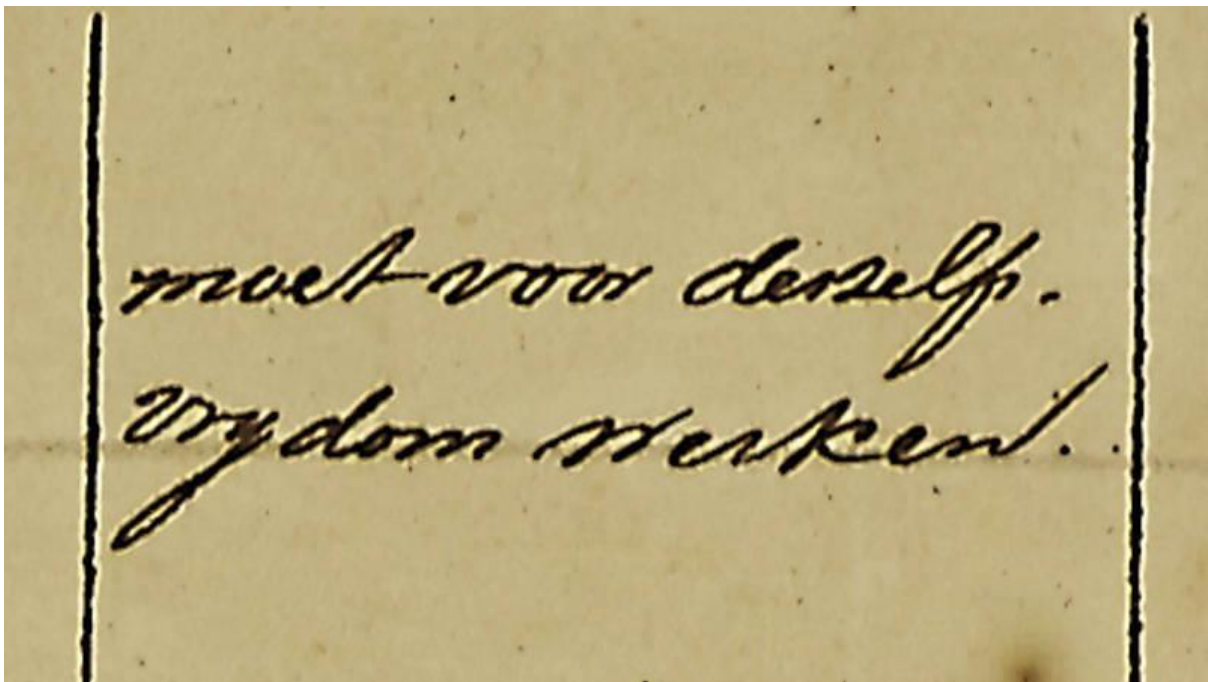 moet voor derselfs.
Vrydom werken.